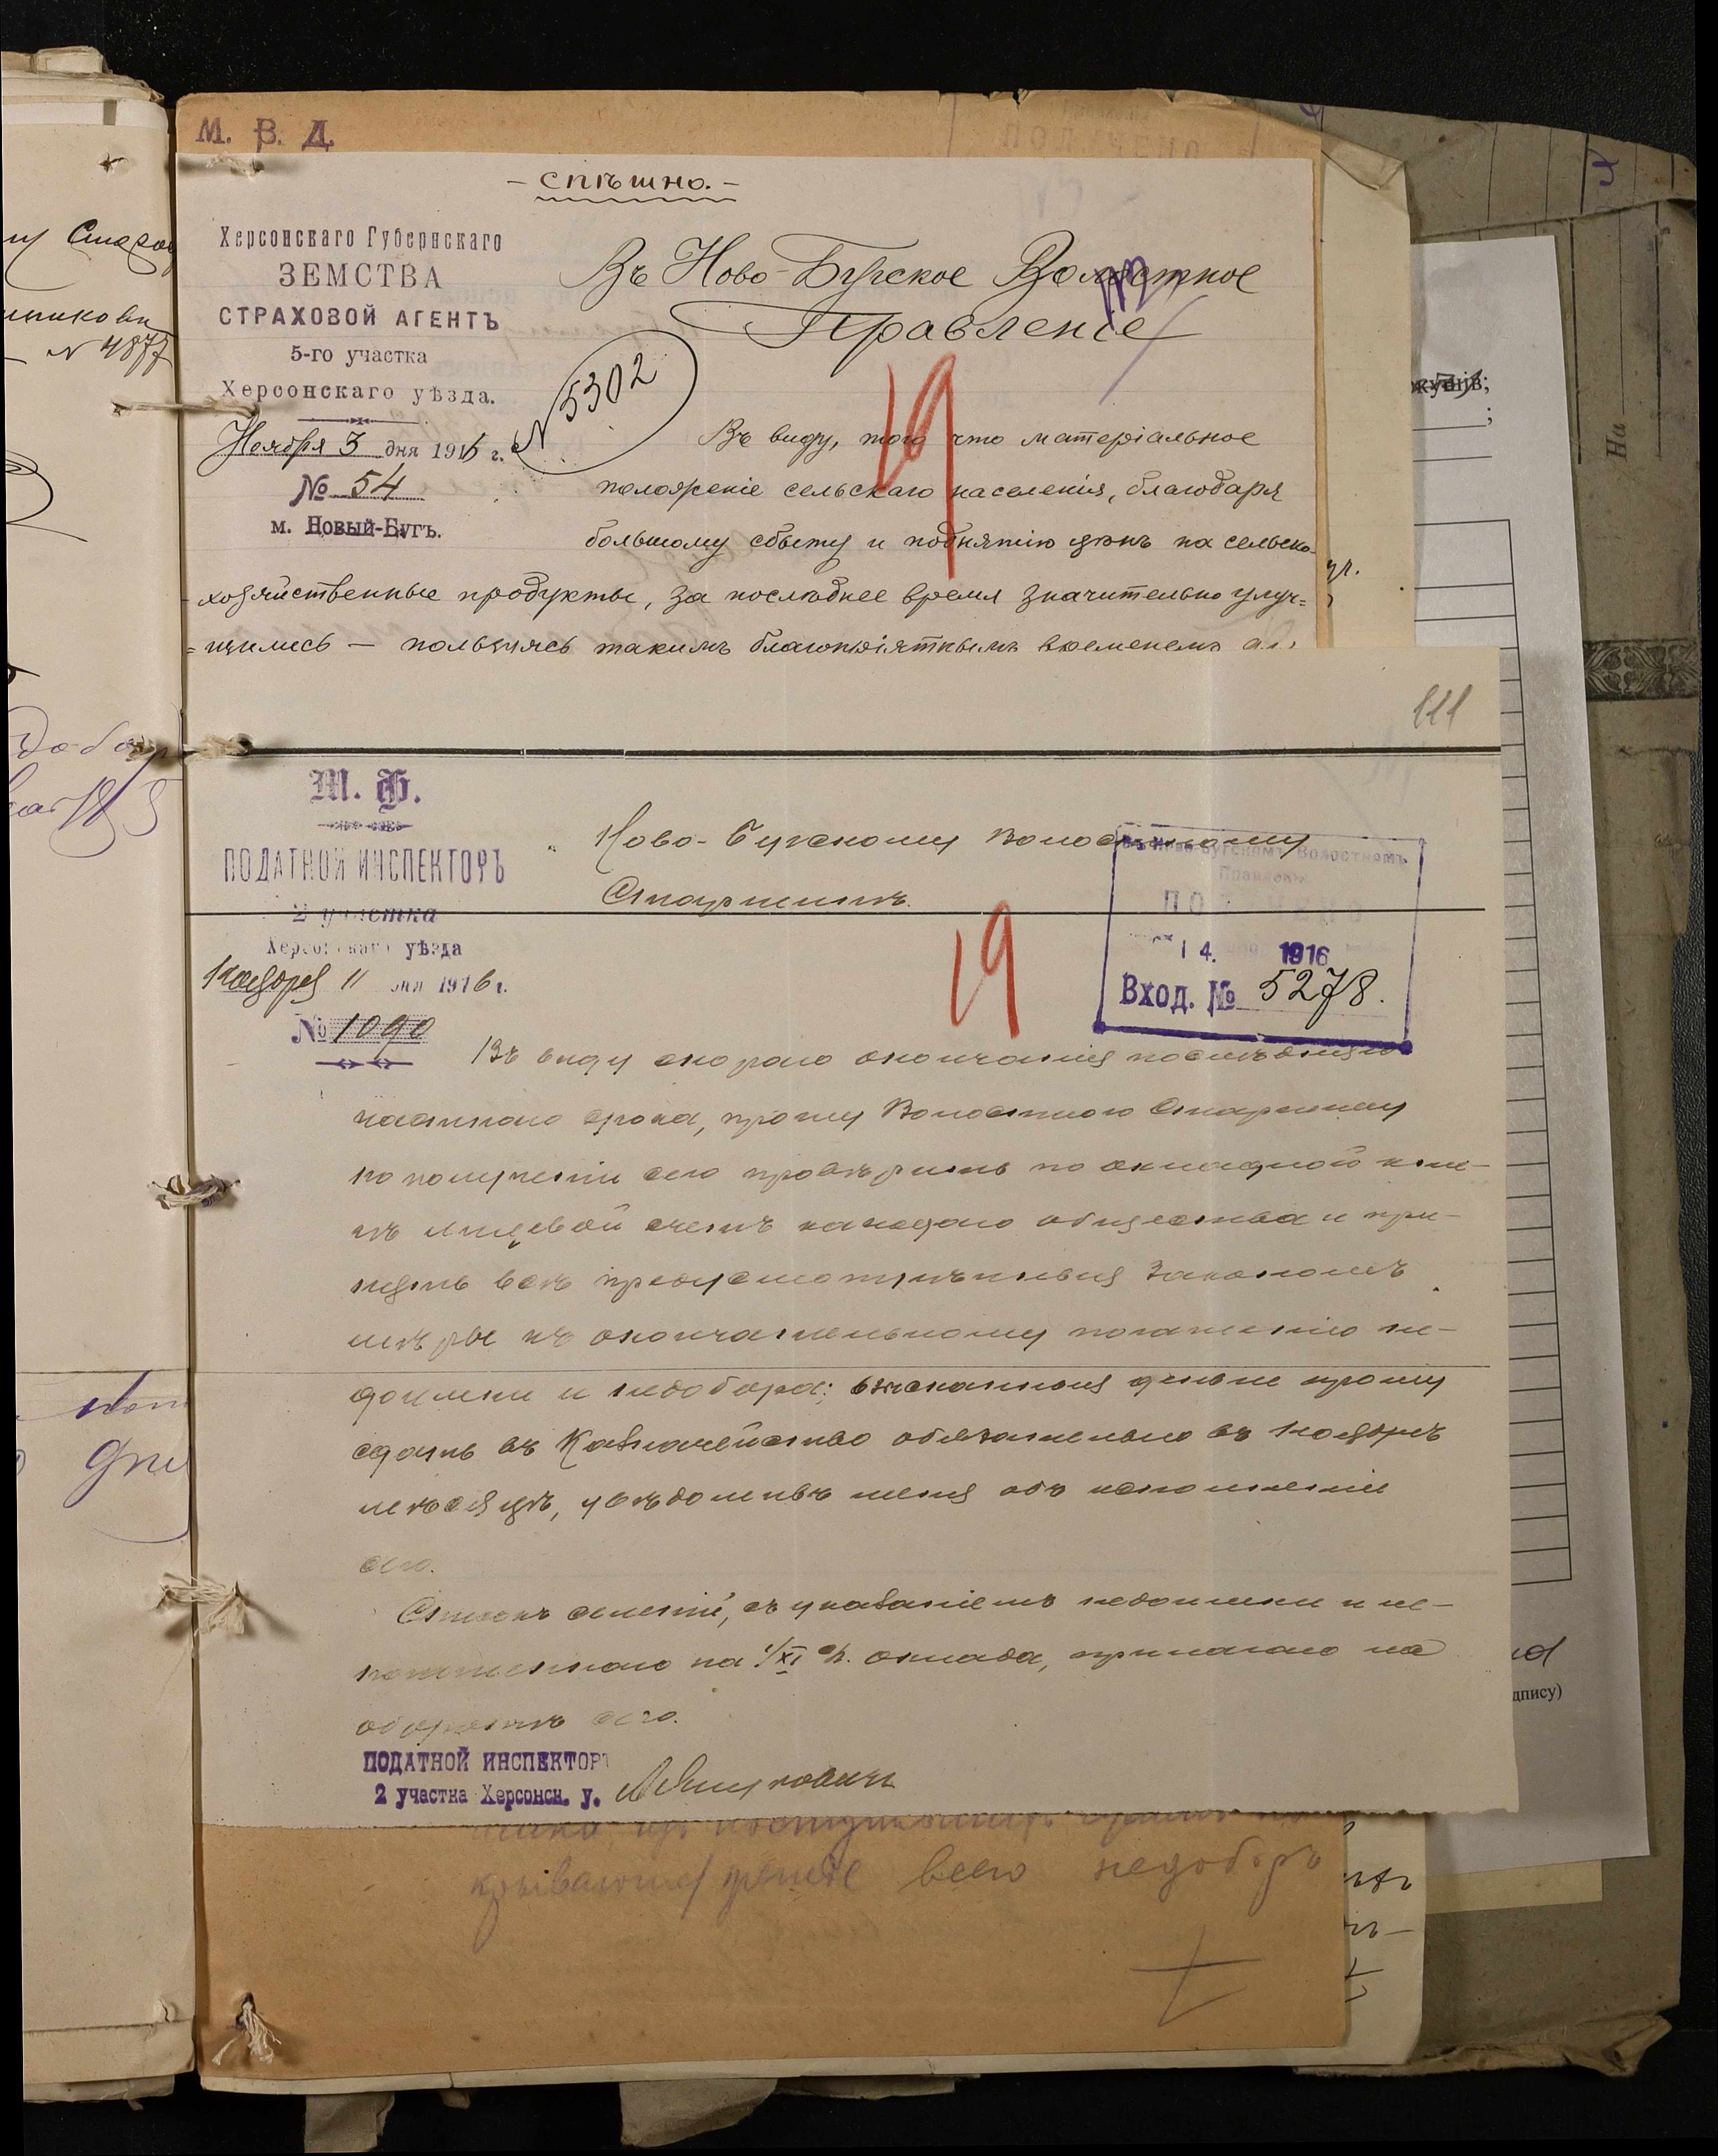 М. В. Д.
- спѣшно. -
Херсонскаго Губернскаго
ЗЕМСТВА
СТРАХОВОЙ АГЕНТЪ
5-го участка
Херсонскаго уѣзда.
Ноября 3 дня 1916 г.
№ 54
м. Новый-Бугъ.
Въ Ново-Бугское Волостное
Правленіе
№ 5302
19
Въ виду, того что матеріальное
положеніе сельскаго населенія, благодаря
большому сбыту и поднятію цѣнъ на сельско-
хозяйственные продукты, за послѣднее время значительно улуч=
=шилось — пользуясь такимъ благопріятнымъ временемъ
111
М. Ф.
ПОДАТНОЙ ИНСПЕКТОРЪ
2 участка
Херсонскаго уѣзда
Ноября 11 дня 1916 г.
№ 1090
Ново-Бугскому Волостному
Старшинѣ.
Въ Ново-Бугскомъ Волостномъ
Правленіи
ПОЛУЧЕНО
14. 1916
Вход. № 5278.
19
Въ виду скораго окончанія послѣдняго
частнаго срока, прошу Волостного Старшину
по полученіи сего провѣрить по окладной кни-
гѣ лицевой счетъ каждаго общества и при-
нять всѣ предусмотрѣнныя закономъ
мѣры къ окончательному погашенію не-
доимки и недобора; взысканныя деньги прошу
сдать въ Казначейство обязательно въ Ноябрѣ
мѣсяцѣ, увѣдомивъ меня объ исполненіи
сего.
Списокъ селеній, съ указаніемъ недоимки и не-
погашеннаго на 1/XI с/г. оклада, прилагаю на
оборотѣ сего.
ПОДАТНОЙ ИНСПЕКТОРЪ
2 участка Херсонск. у.
всего недоборъ
№ 4877
На
дпису)